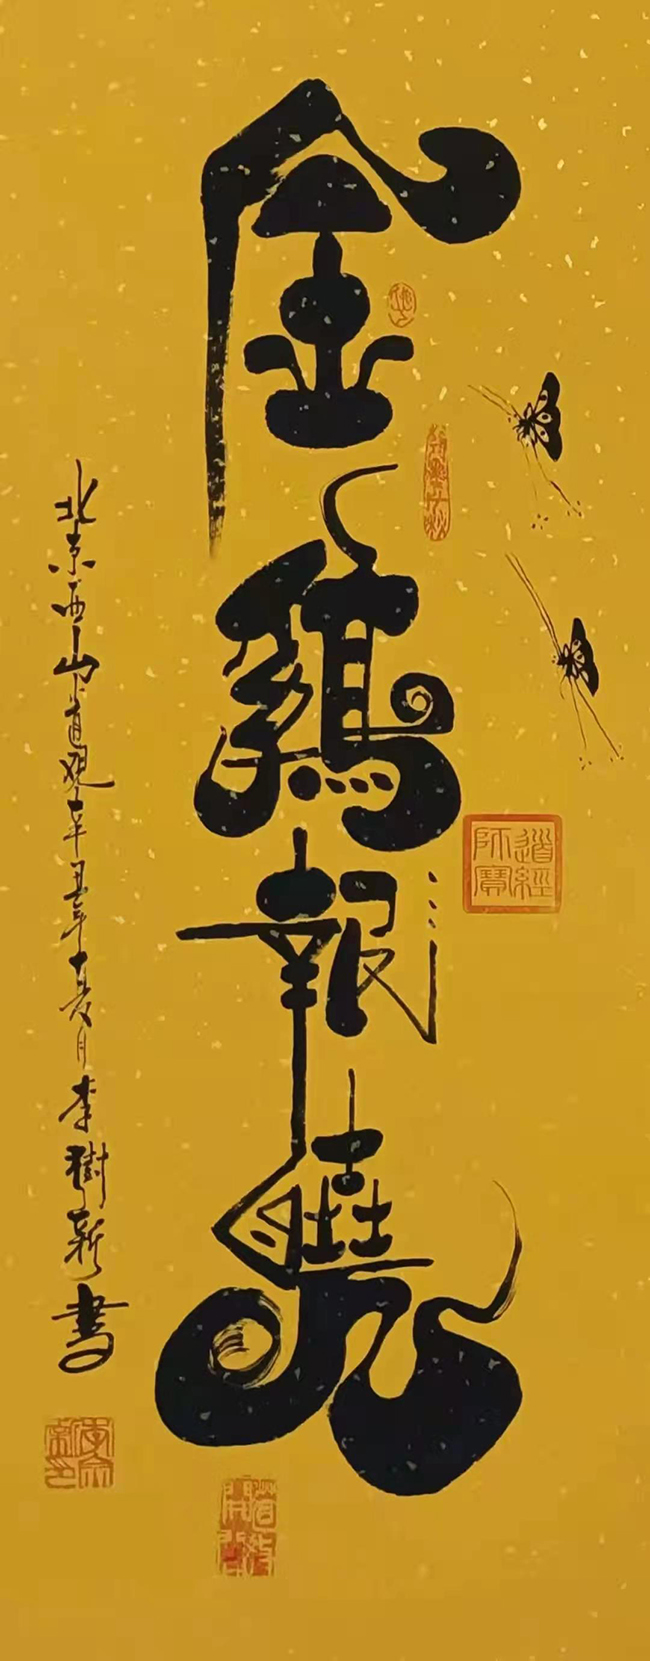 金鷄報曉
北京西山道观辛丑年夏月李樹新書
道經師寶